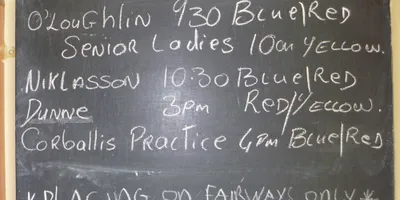 O'Loughlin 930 Blue/Red
Senior Ladies 10am Yellow.
Niklasson 10.30 Blue/Red
Dunne 3pm Red/Yellow.
Corballis Practice 4pm Blue/Red
* Placing on Fairways only *